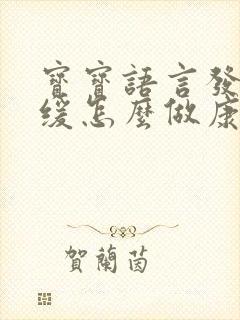 寶寶語言發
緩怎麼做康
賀蘭茵